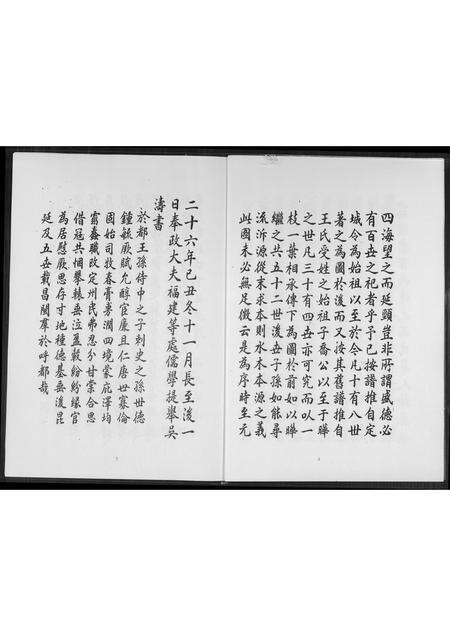 四海望之而延頸豈非所謂盛德必
有百世之祀者乎予已按譜推自
城令為始祖以至於今凡十有八世
著之為圖於後而又按其舊譜推自
王氏受姓之始祖子喬公以至于曄
之世凡三十有四世亦可究而以一
枝一葉相承傳下為圖於前如以曄
繼之共五十二世後世子孫如能尋
流泝源從末求本則水木本源之義
此圖未必無足徵云是為序時至元
二十六年己丑冬十一月長至後一
日奉政大夫福建等處儒學提舉吳
濤書
於都王孫侍中之子刺史之孫世德
鍾毓厥賦允醇官廉且仁居世寡倫
固始司牧春膏旁潤四境蒙庇澤均
霧 職改定州民弗忍分甘棠合思
借寇共悃攀轅垂泣盈轂紛紛緣官
為居慰厥思存寸地種德基垂後昆
延及五世載昌閥羣於呼都哉